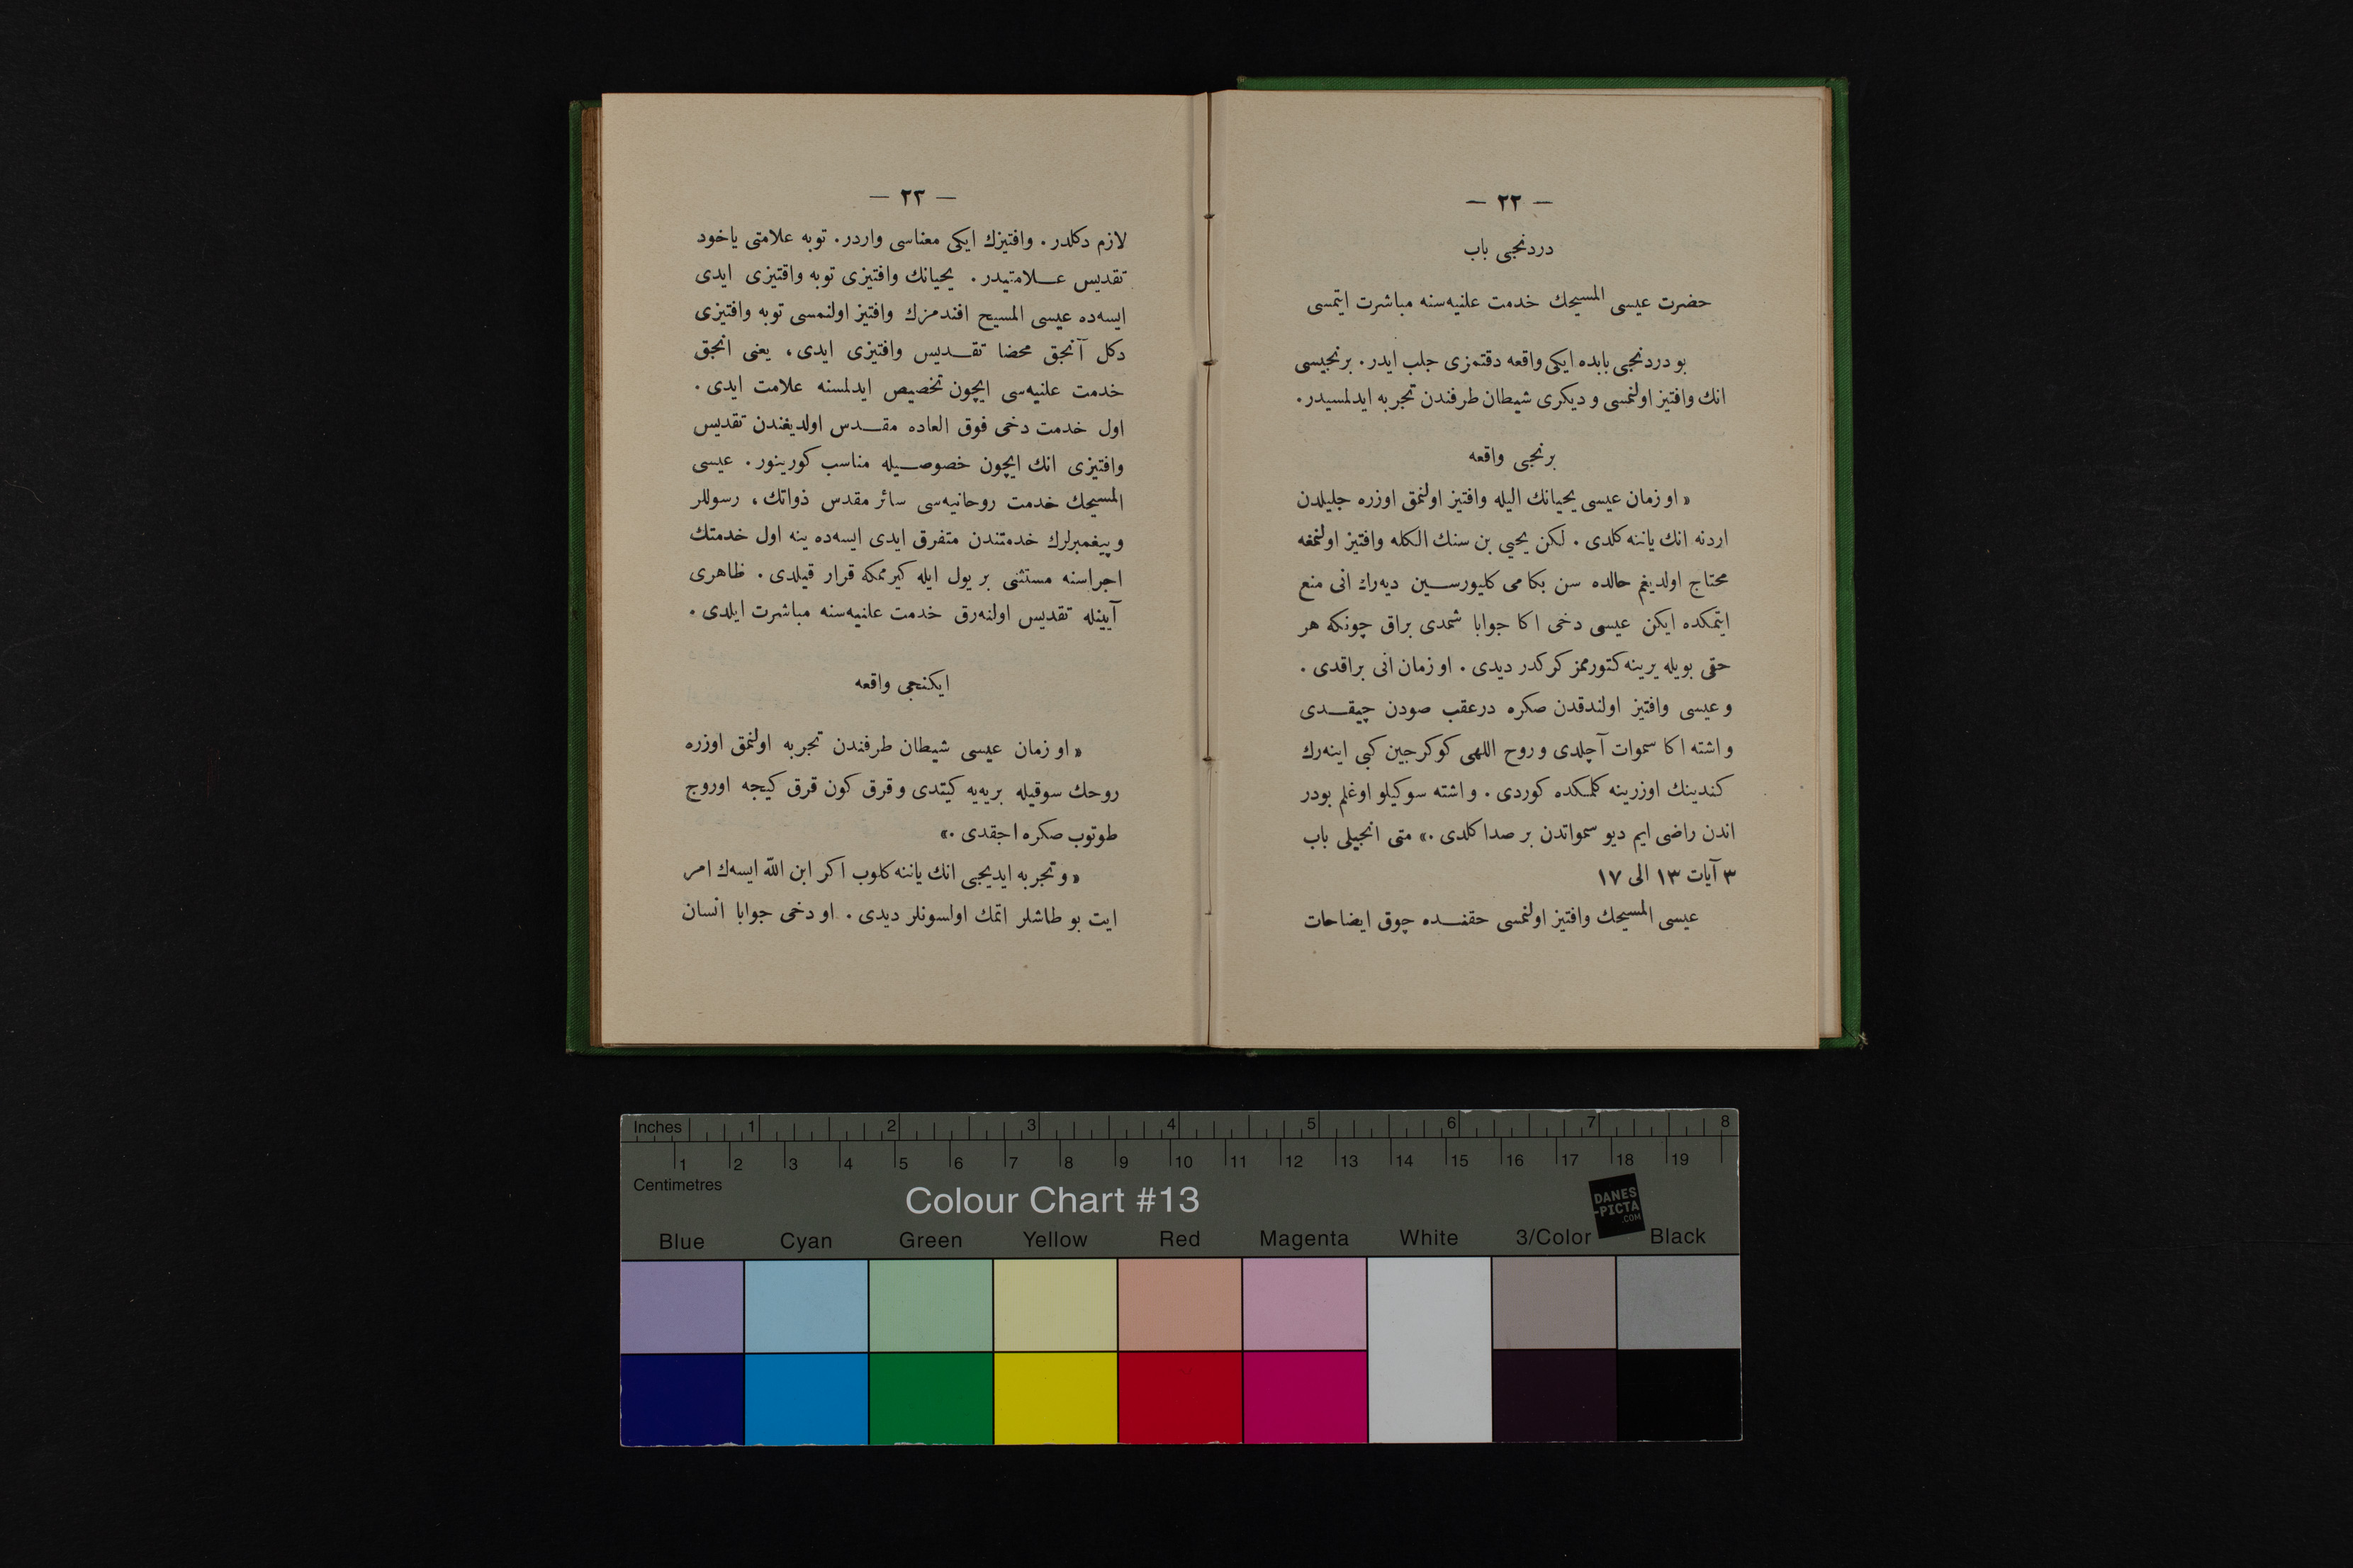 — ٢٢ —
دردنجی باب
حضرت عیسی المسیحك خدمت علنیه‌سنه مباشرت ایتمسی
بو دردنجی بابده ایکی واقعه دقتمزی جلب ایدر. برنجیسی
انك وافتیز اولنمسی و دیکری شیطان طرفندن تجربه ایدلمسیدر.
برنجی واقعه
« او زمان عیسی یحیانك الیله وافتیز اولنمق اوزره جلیلدن
اردنه انك یاننه کلدی. لکن یحیی بن سنك الکله وافتیز اولنمغه
محتاج اولدیغم حالده سن بکا می کلیورسین دیه‌رك انی منع
ایتمکده ایکن عیسی دخی اکا جوابا شمدی براق چونکه هر
حقی بویله یرینه کتورممز کرکدر دیدی. او زمان انی براقدی.
و عیسی وافتیز اولندقدن صکره درعقب صودن چیقدی
و اشته اکا سموات آچلدی و روح اللهی کوکرجین کبی اینه‌رك
کندینك اوزرینه کلمکده کوردی. و اشته سوکیلو اوغلم بودر
اندن راضی ایم دیو سمواتدن بر صدا کلدی.» متی انجیلی باب
٣ آیات ١٣ الی ١٧
عیسی المسیحك وافتیز اولنمسی حقنده چوق ایضاحات
— ٢٣ —
لازم دکلدر. وافتیزك ایکی معناسی واردر. توبه علامتی یاخود
تقدیس علامتیدر. یحیانك وافتیزی توبه وافتیزی ایدی
ایسه‌ده عیسی المسیح افندمزك وافتیز اولنمسی توبه وافتیزی
دکل آنجق محضا تقدیس وافتیزی ایدی، یعنی انجق
خدمت علنیه‌سی ایچون تخصیص ایدلمسنه علامت ایدی.
اول خدمت دخی فوق العاده مقدس اولدیغندن تقدیس
وافتیزی انك ایچون خصوصیله مناسب کورینور. عیسی
المسیحك خدمت روحانیه‌سی سائر مقدس ذواتك، رسوللر
و پیغمبرلرك خدمتندن متفرق ایدی ایسه‌ده ینه اول خدمتك
اجراسنه مستثنی بر یول ایله کیرممکه قرار قیلدی. ظاهری
آیینله تقدیس اولنه‌رق خدمت علنیه‌سنه مباشرت ایلدی.
ایکنجی واقعه
« او زمان عیسی شیطان طرفندن تجربه اولنمق اوزره
روحك سوقیله بریه‌یه کیتدی و قرق کون قرق کیجه اوروج
طوتوب صکره اجقدی.»
« و تجربه ایدیجی انك یاننه کلوب اکر ابن اللّه ایسه‌ك امر
ایت بو طاشلر اتمك اولسونلر دیدی. او دخی جوابا انسان
Inches 1 2 3 4 5 6 7 8
1 2 3 4 5 6 7 8 9 10 11 12 13 14 15 16 17 18 19
Centimetres
Colour Chart #13
DANES
-PICTA
.COM
Blue Cyan Green Yellow Red Magenta White 3/Color Black